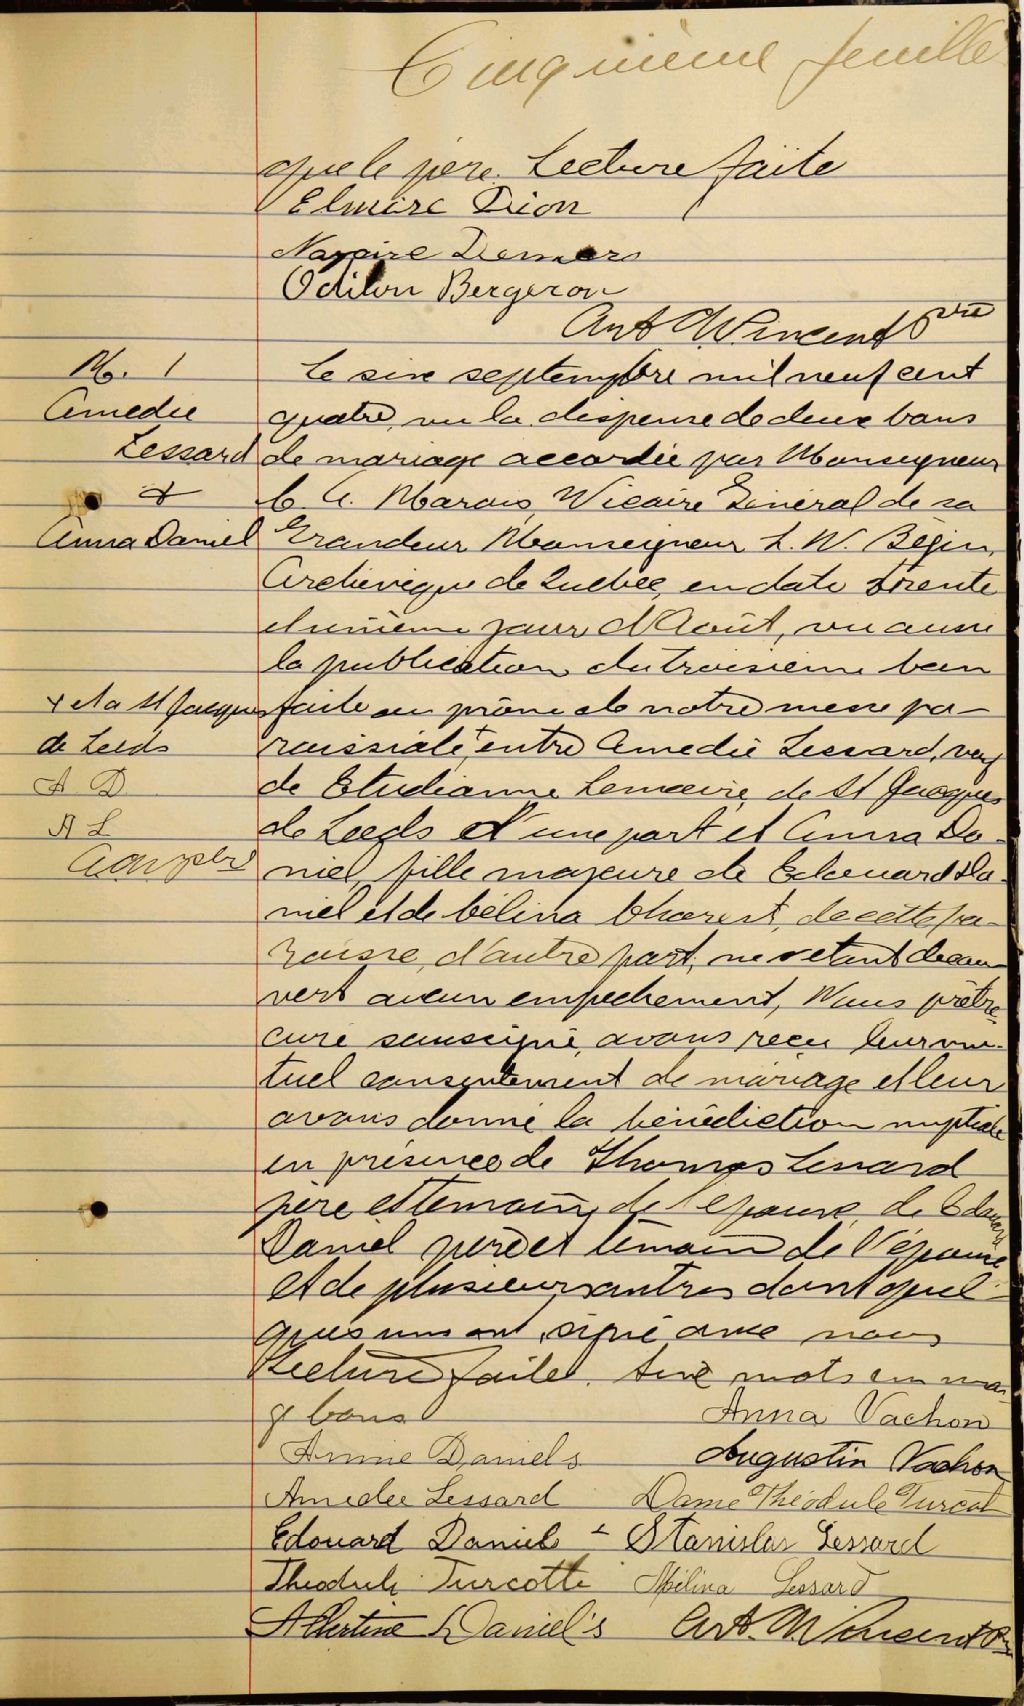 Cinquième feuille
que le père. Lecture faite
Elmire Dion
Nazaire Demers
Odilon Bergeron
Ant. M. Vincent Ptre
M. 1
Amedée
Lessard
&
Anna Daniel
Le six septembre mil neuf cent
quatre, vu la dispense de deux bans
de mariage accordée par Monseigneur
C. A. Marois, Vicaire Général de sa
Grandeur Monseigneur L. N. Bégin,
Archevêque de Québec, en date trente
et unième jour d'Août, vu aussi
la publication du troisième ban
+ et à St Jacques
de Leeds
A D
A L
faite au prône de notre messe pa-
roissiale, + entre Amedée Lessard, veuf
de Etudianne Lemaire, de St Jacques
de Leeds d'une part et Anna Da-
niel, fille majeure de Edouard Da-
niel et de Célina Charest, de cette pa-
roisse, d'autre part, ne s'étant décou-
vert aucun empêchement, Nous prêtre,
curé soussigné, avons reçu leur mu-
tuel consentement de mariage et leur
avons donné la bénédiction nuptiale
en présence de Thomas Lessard
père et témoin de l'époux, de Edouard
Daniel père et témoin de l'épouse
et de plusieurs autres dont quel-
ques uns ont signé avec nous
Lecture faite. Six mots en mar-
ge bons
Anna Vachon
Annie Daniels
Augustin Vachon
Amedee Lessard
Dame Théodule Turcot
Edouard Daniel
Stanislas Lessard
Theodule Turcotte
Mélina Lessard
Albertine Daniel's
Art. M. Vincent Ptr